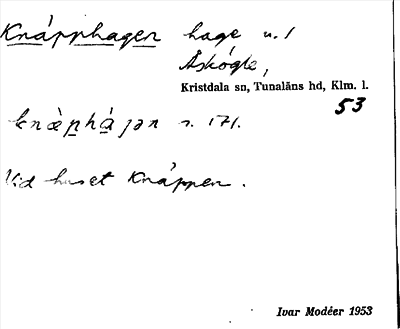 Knäpphagen hage u. /
Äskögle,
Kristdala sn, Tunaläns hd, Klm. l.
53
knæ̀phá jən s. 171.
Vid huset Knäppen.
Ivar Modéer 1953